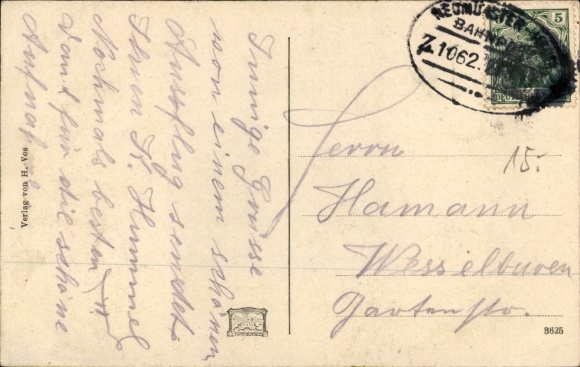 Innige Grüsse
von einem schönen
Ausflug sendet
Ihnen K. Hummel
Nochmals besten
Dank für die schöne
Aufnah
Verlag von H. Vos
NEUMÜNSTER
BAHNPOST
Z.1062.
5
15.-
Herrn
Hamann
Wesselburen
Gartenstr.
3625